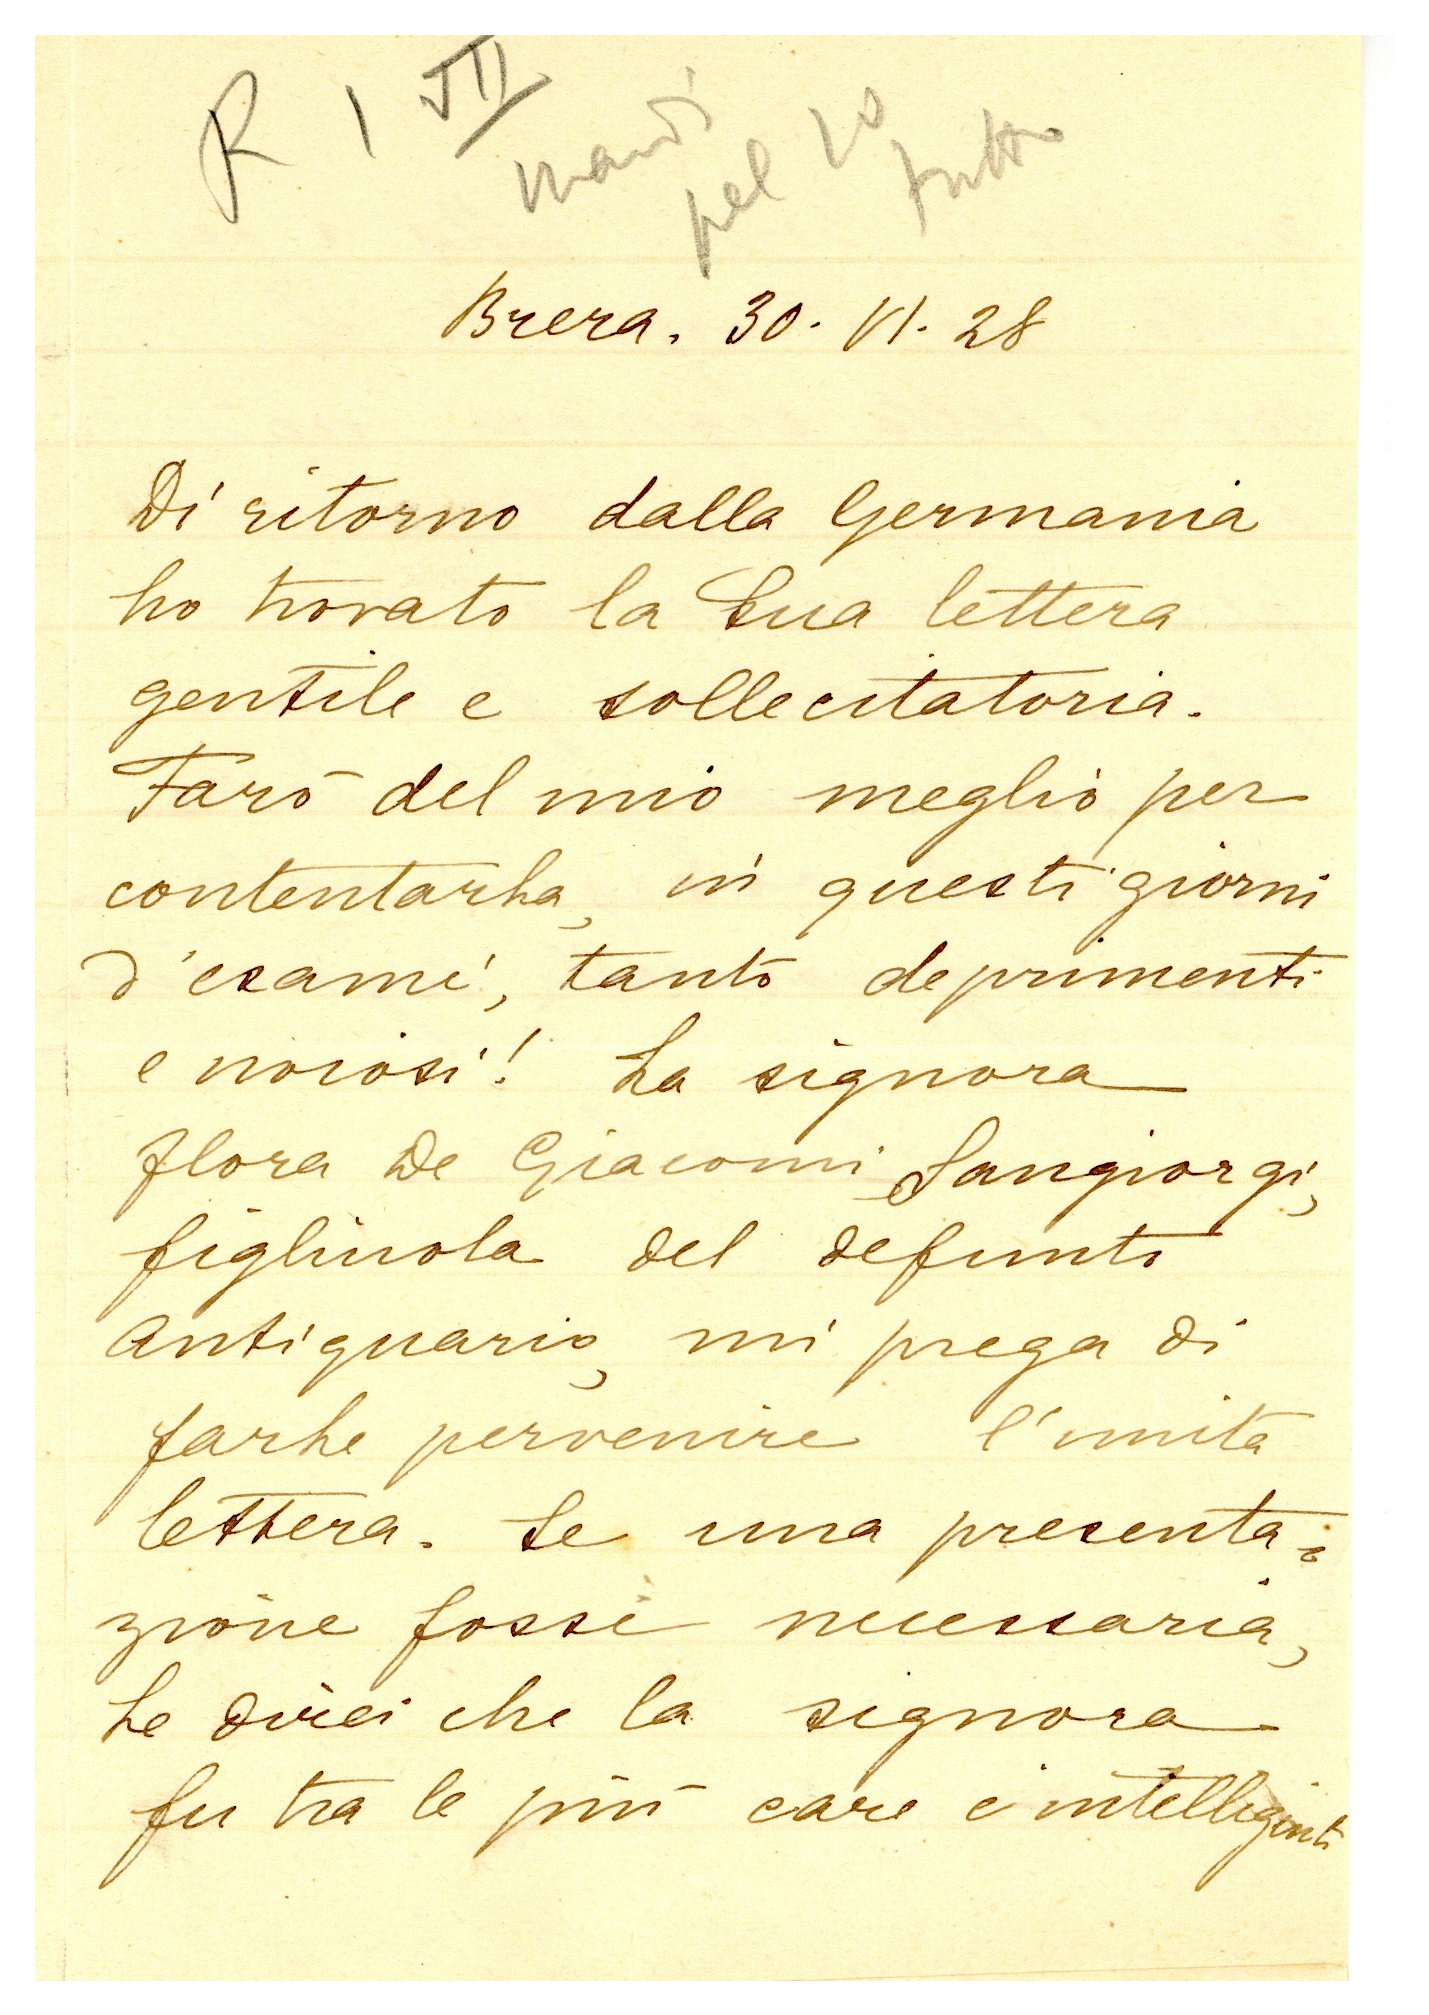 R 1 VII
mandi
pel 10
Brera. 30. VI. 28
Di ritorno dalla Germania
ho trovato la Sua lettera
gentile e sollecitatoria.
Farò del mio meglio per
contentarLa, in questi giorni
d'esami, tanto deprimenti
e noiosi! La signora
Flora De Giacomi Sangiorgi,
figliuola del defunto
Antiquario, mi prega di
farLe pervenire l'unita
lettera. Se una presenta=
zione fosse necessaria,
Le direi che la signora
fu tra le più care e intelligenti